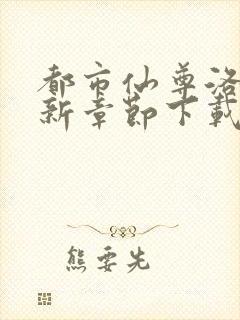 都市仙尊洛
新章節下載
熊要先